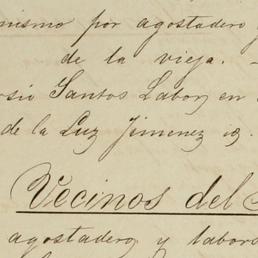 mismo por agostadero
de la vieja. -
Santos Labor, en
de la Luz Jimenez
Vecinos del
agostadero, y labor